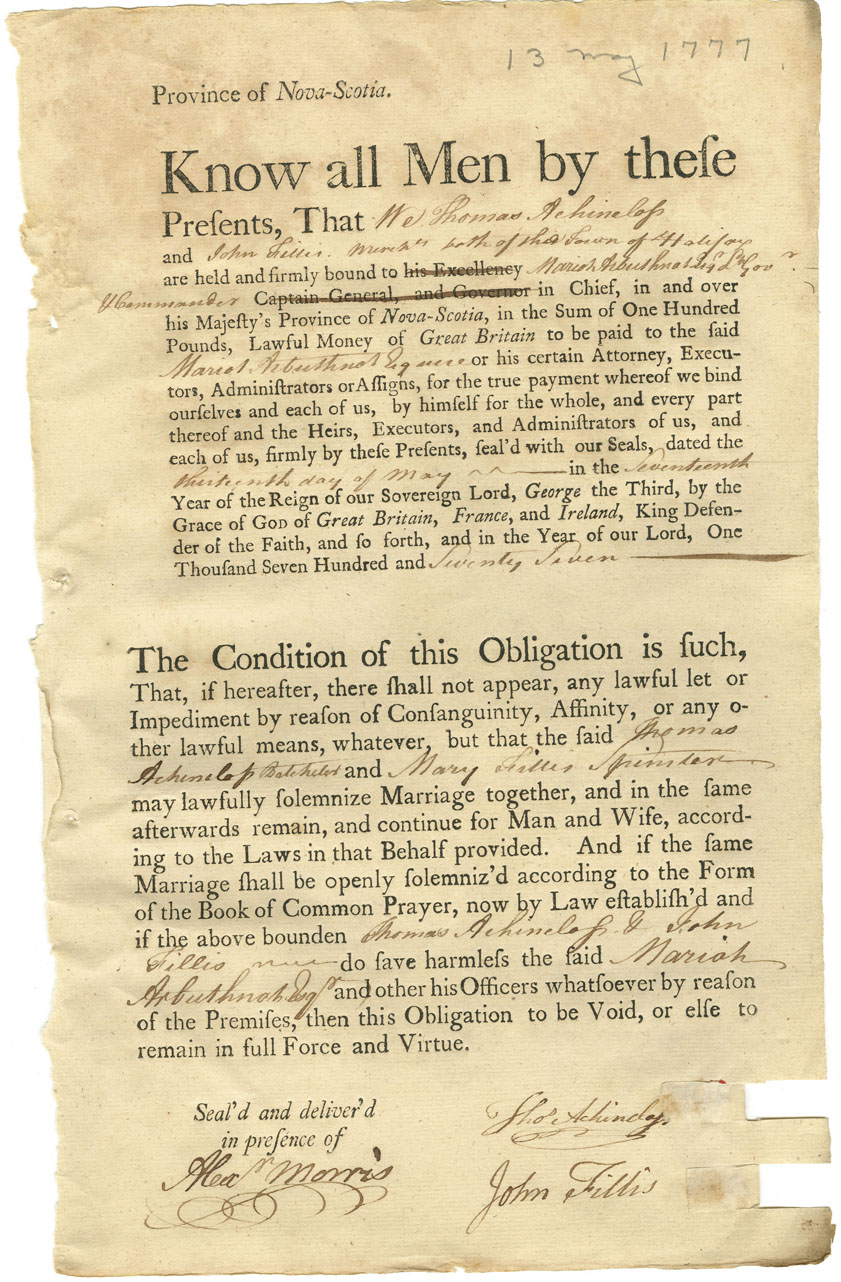 13 may 1777
Province of Nova-Scotia.
Know all Men by theſe
Preſents, That We Thomas Achincloſs
and John Fillis Merchts both of the Town of Halifax
are held and firmly bound to his Excellency Mariot Arbuthnot Esqr Lt Govr.
& Commander Captain General, and Governor in Chief, in and over
his Majeſty's Province of Nova-Scotia, in the Sum of One Hundred
Pounds, Lawful Money of Great Britain to be paid to the ſaid
Mariot Arbuthnot Esquire or his certain Attorney, Execu-
tors, Adminiſtrators or Aſſigns, for the true payment whereof we bind
ourſelves and each of us, by himſelf for the whole, and every part
thereof and the Heirs, Executors, and Adminiſtrators of us, and
each of us, firmly by theſe Preſents, ſeal'd with our Seals, dated the
thirteenth day of May in the Seventeenth
Year of the Reign of our Sovereign Lord, George the Third, by the
Grace of God of Great Britain, France, and Ireland, King Defen-
der of the Faith, and ſo forth, and in the Year of our Lord, One
Thouſand Seven Hundred and Seventy Seven
The Condition of this Obligation is ſuch,
That, if hereafter, there ſhall not appear, any lawful let or
Impediment by reaſon of Conſanguinity, Affinity, or any o-
ther lawful means, whatever, but that the ſaid Thomas
Achincloſs Batchelor and Mary Fillis Spinster
may lawfully ſolemnize Marriage together, and in the ſame
afterwards remain, and continue for Man and Wife, accord-
ing to the Laws in that Behalf provided. And if the ſame
Marriage ſhall be openly ſolemniz'd according to the Form
of the Book of Common Prayer, now by Law eſtabliſh'd and
if the above bounden Thomas Achincloſs & John
Fillis do ſave harmleſs the ſaid Mariot
Arbuthnot Esqr and other his Officers whatſoever by reaſon
of the Premiſes, then this Obligation to be Void, or elſe to
remain in full Force and Virtue.
Seal'd and deliver'd
in preſence of
Alexr Morris
Thos Achincloſs
John Fillis